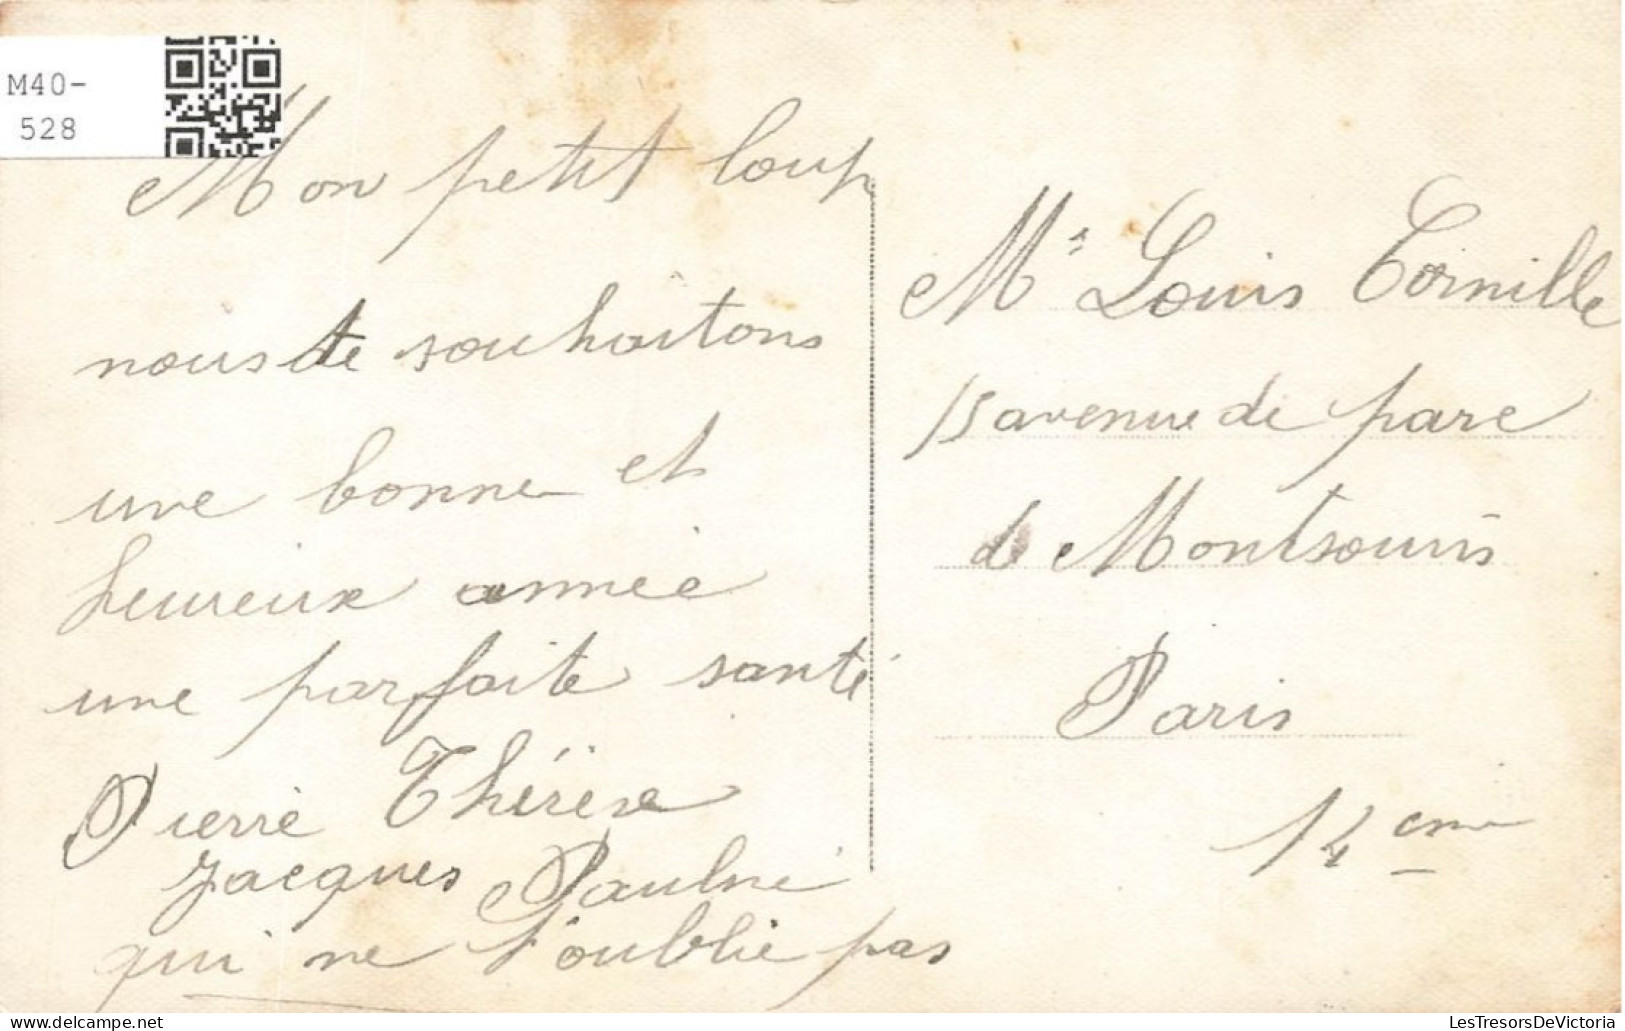 M40-
528
Mon petit loup
nous te souhaitons
une bonne et
heureuse année
une parfaite santé
Pierre Thérèse
Jacques Pauline
qui ne t'oublie pas
Mr Louis Cornille
15 avenue de parc
de Montsouris
Paris
14eme
delcampe.net
LesTresorsDeVictoria